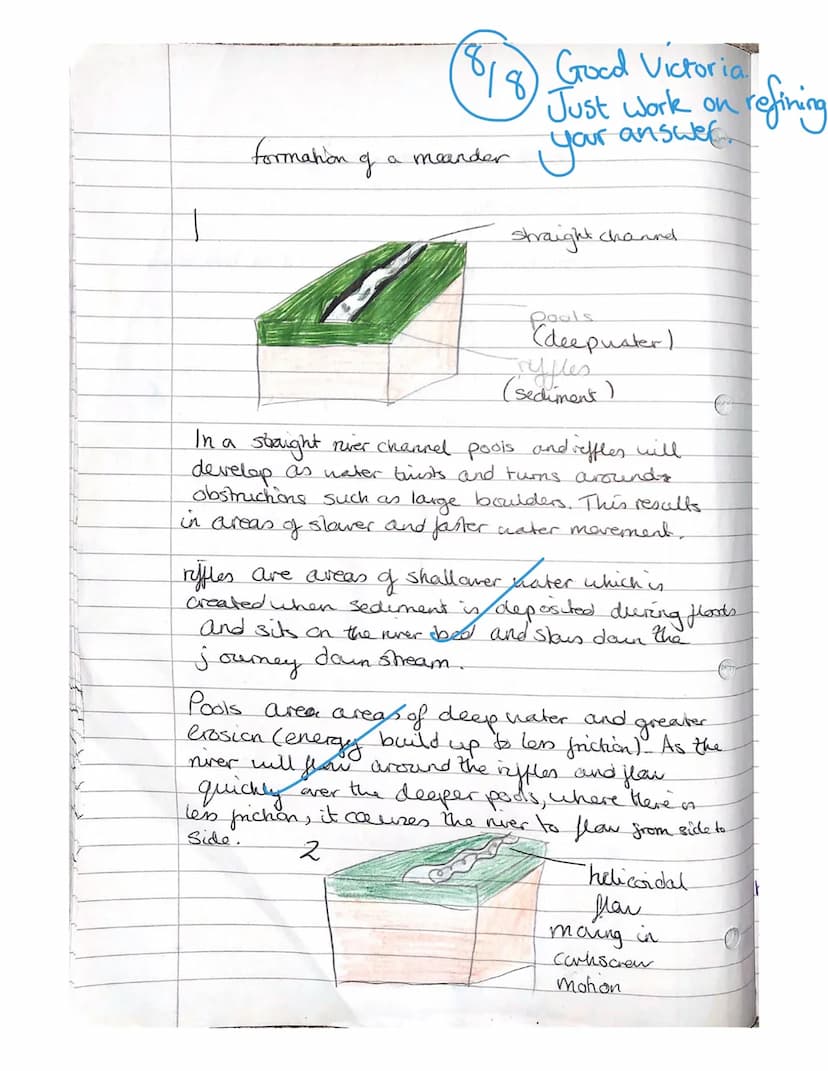 8/8 Good Victoria.
Just work on refining
your answer.
formation of a meander
1
straight channel
pools
(deepwater)
ryffles
(sediment)
In a straight river channel pools and riffles will
develop as water twists and turns around
obstructions such as large boulders. This results
in areas of slower and faster water movement.
riffles are areas of shallower water which is
created when sediment is deposited during floods
and sits on the river bed and slows down the
journey down stream.
Pools are areas of deep water and greater
erosion (energy build up to less friction). As the
river will flow around the riffles and flow
quickly over the deeper pools, where there is
less friction, it causes the river to flow from side to
side.
2
helicoidal
flow
moving in
corkscrew
motion